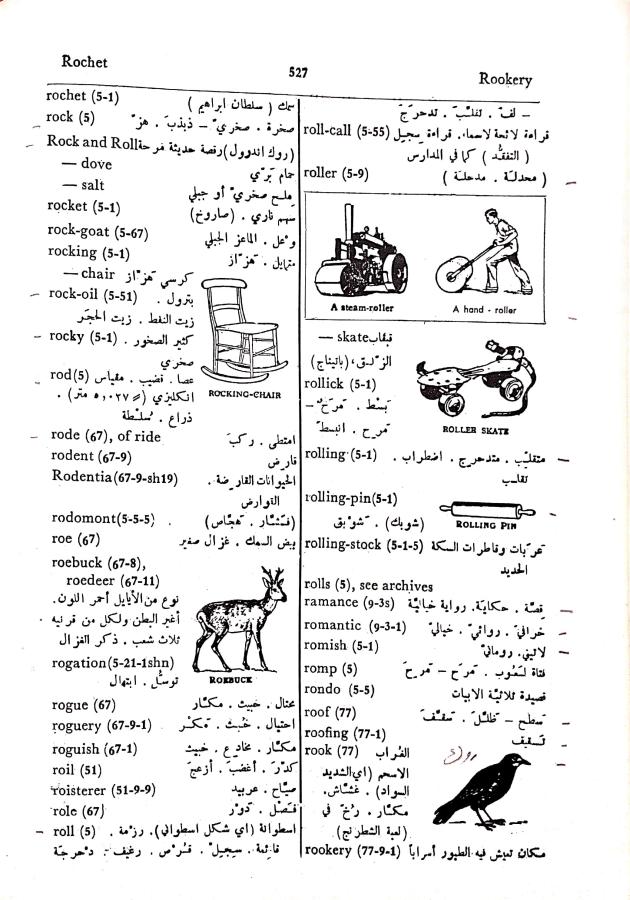 Rochet
527
Rookery
rochet (5-1) سمك ( سلطان ابراهيم )
rock (5) صخرة . صخري – ذبذب . هز
Rock and Roll (روك اندرول) رقصة حديثة مرحة
— dove حمام بري
— salt ملح صخري أو جبلي
rocket (5-1) سهم ناري . (صاروخ)
rock-goat (5-67) وعل . الماعز الجبلي
rocking (5-1) متمايل . هزاز
— chair كرسي هزاز
rock-oil (5-51) بترول .
زيت النفط . زيت الحجر
rocky (5-1) كثير الصخور .
صخري
ROCKING-CHAIR
rod(5) عصا . قضيب . مقياس
انكليزي (= ٥,٠٢٧ متر) .
ذراع . سلطة
rode (67), of ride امتطى . ركب
rodent (67-9) قارض
Rodentia(67-9-sh19) الحيوانات القارضة .
القوارض
rodomont(5-5-5) (فشار . هجاس) .
roe (67) بيض السمك . غزال صغير
roebuck (67-8),
roedeer (67-11)
نوع من الأيايل أحمر اللون.
أغبر البطن ولكل من قرنيه
ثلاث شعب . ذكر الغزال
ROEBUCK
rogation(5-21-1shn)
توسل . ابتهال
rogue (67) محتال . خبيث . مكار
roguery (67-9-1) احتيال . خبث . مكر
roguish (67-1) مكار . مخادع . خبيث
roil (51) كدر . أغضب . أزعج
roisterer (51-9-9) صياح . عربيد
role (67) فصل . دور
roll (5) اسطوانة (اي شكل اسطواني). رزمة .
قائمة . سجيل . قرص . رغيف . دحرجة
– لف . تقلب . تدحرج
roll-call (5-55) قراءة لائحة لاسماء. قراءة سجيل
( التفقد ) كما في المدارس
roller (5-9) ( محدلة . مدحلة )
A steam-roller
A hand - roller
— skate قبقاب
الزلق، (باتيناج)
rollick (5-1)
بسط . مرح –
مرح . انبسط
ROLLER SKATE
rolling (5-1) متقلب . متدحرج . اضطراب .
تقلب
rolling-pin(5-1)
(شوبك) . شوبق
ROLLING PIN
rolling-stock (5-1-5) عربات وقاطرات السكة
الحديد
rolls (5), see archives
ramance (9-3s) قصة . حكاية. رواية خيالية
romantic (9-3-1) خرافي . روائي . خيالي
romish (5-1) لاتيني. روماني
romp (5) فتاة لعوب . مرح – مرح
rondo (5-5) قصيدة ثلاثية الابيات
roof (77) سطح – ظلل . سقف
roofing (77-1) تسقيف
rook (77) الغراب
روك
الاسحم (اي الشديد
السواد) . غشاش.
مكار . رخ في
(لعبة الشطرنج)
rookery (77-9-1) مكان تعيش فيه الطيور أسراباً